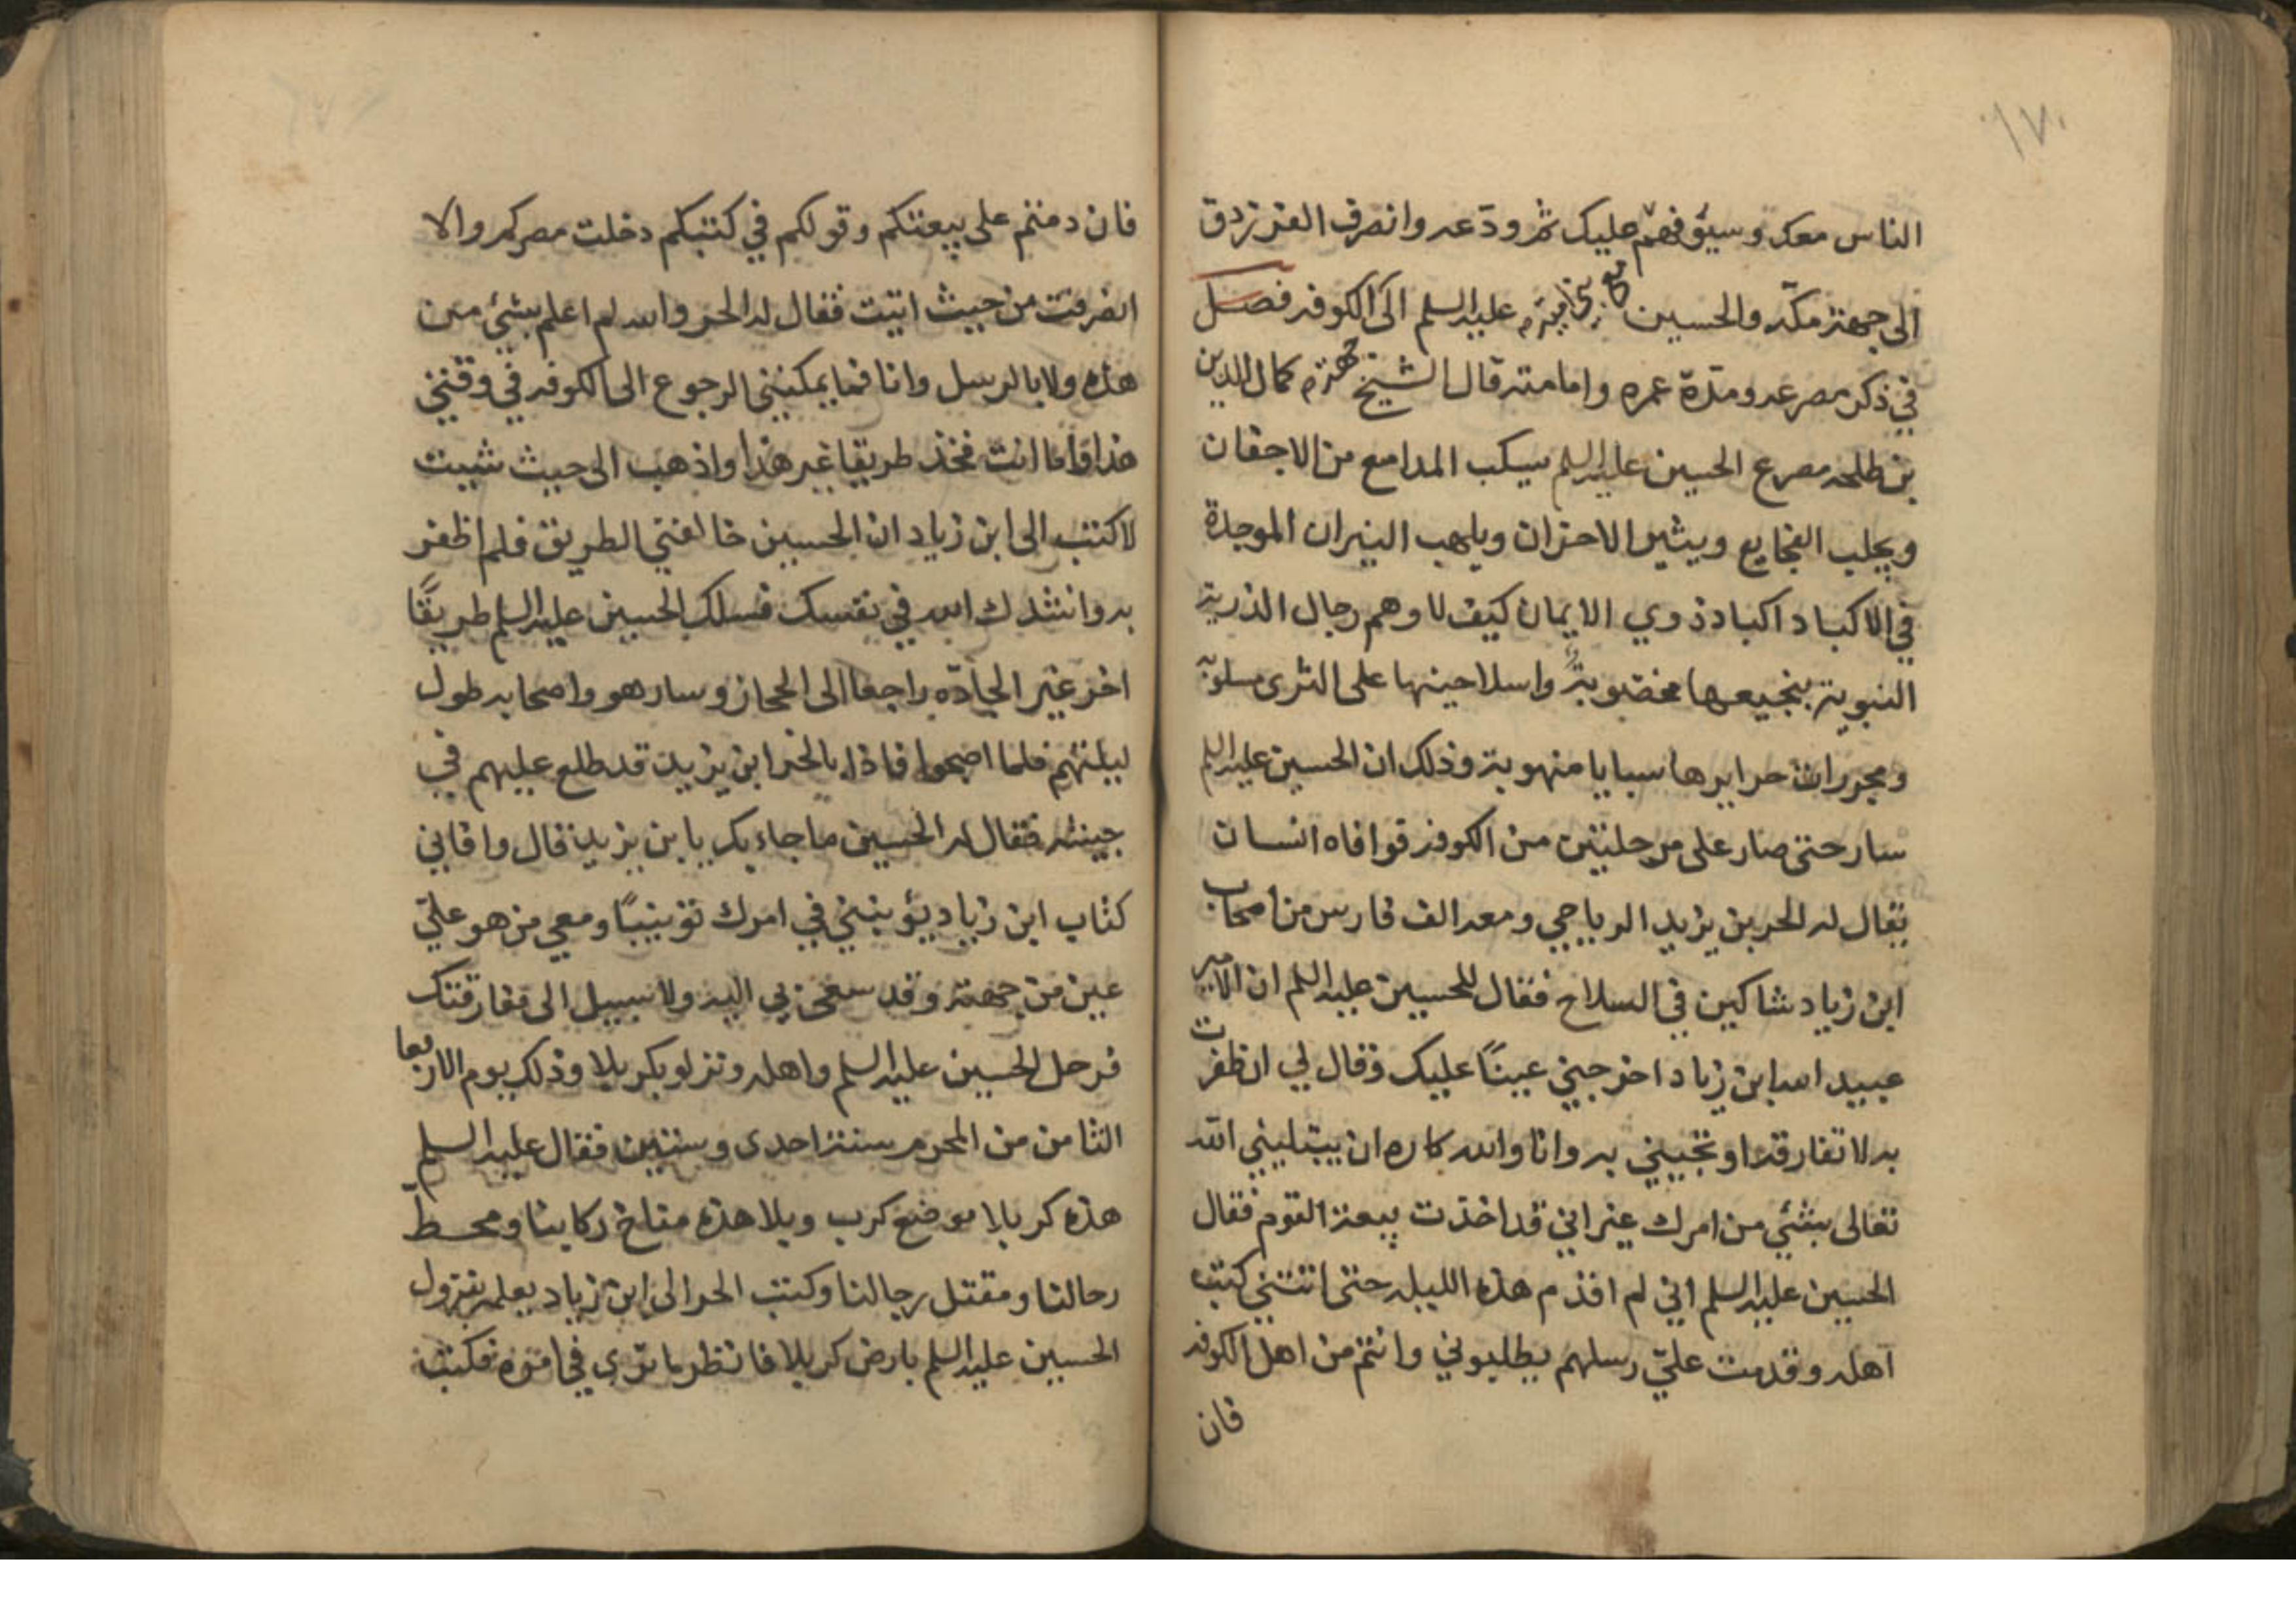 ١٧٠
الناس معك وسيوفهم عليك ثم ودّعه وانصرف الفرزدق
الى جهة مكّه والحسين عليه السلم الى الكوفه فصل
في ذكر مصرعه ومدّة عمره وامامته قال الشيخ كمال الدين
بن طلحه مصرع الحسين عليه السلم يسكب المدامع من الاجفان
ويجلب الفجايع ويثير الاحزان ويلهب النيران الموجدة
في الاكباد اكباد ذوي الايمان كيف لا وهم رجال الذرية
النبوية بنجيعها مخضوبة واسلاحينها على الثرى مسلوبة
ومجررات حرايرها سبايا منهوبة وذلك ان الحسين عليه السلم
سار حتى صار على مرحلتين من الكوفه فوافاه انسان
يقال له الحر بن يزيد الرياحي ومعه الف فارس من اصحاب
ابن زياد شاكين في السلاح فقال للحسين عليه السلم ان الامير
عبيد الله ابن زياد اخرجني عينًا عليك وقال لي ان ظفرت
به لا تفارقه او تجيبني به وانا والله كاره ان يبتليني الله
تعالى بشئي من امرك غير اني قد اخذت بيعة القوم فقال
الحسين عليه السلم اني لم اقدم هذه الليله حتى اتتني كتب
اهله وقدمت عليّ رسلهم يطلبوني وانتم من اهل الكوفه
فان
فان دمتم على بيعتكم وقولكم في كتبكم دخلت مصركم والا
انصرفت من حيث اتيت فقال له الحر والله لم اعلم بشئي من
هذه ولا بالرسل وانا فما يمكنني الرجوع الى الكوفه في وقتي
هذا واما انت فخذ طريقا غير هذا واذهب الى حيث شيت
لاكتب الى ابن زياد ان الحسين خالفني الطريق فلم اظفر
به وانشدك الله في نفسك فسلك الحسين عليه السلم طريقًا
اخر غير الجادّه راجعا الى الحجاز وسار هو واصحابه طول
ليلتهم فلما اصبحوا فاذا بالحر ابن يزيد قد طلع عليهم في
جيشه فقال له الحسين ما جاء بك يا بن يزيد قال وافاني
كتاب ابن زياد يؤنبني في امرك تونيبًا ومعي من هو عليّ
عين من جهته وقد سعى بي اليه ولا سبيل الى مفارقتك
فرحل الحسين عليه السلم واهله ونزلو بكربلا وذلك يوم الاربعا
الثامن من المحرم سنة احدى وستين فقال عليه السلم
هذه كربلا موضع كرب وبلا هذه مناخ ركابنا ومحطّ
رحالنا ومقتل رجالنا وكتب الحر الى ابن زياد يعلمه بنزول
الحسين عليه السلم بارض كربلا فانظر ما ترى في امره فكتب